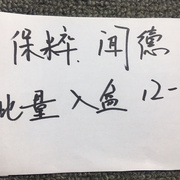 保粹、闻德
批量入盒 12-